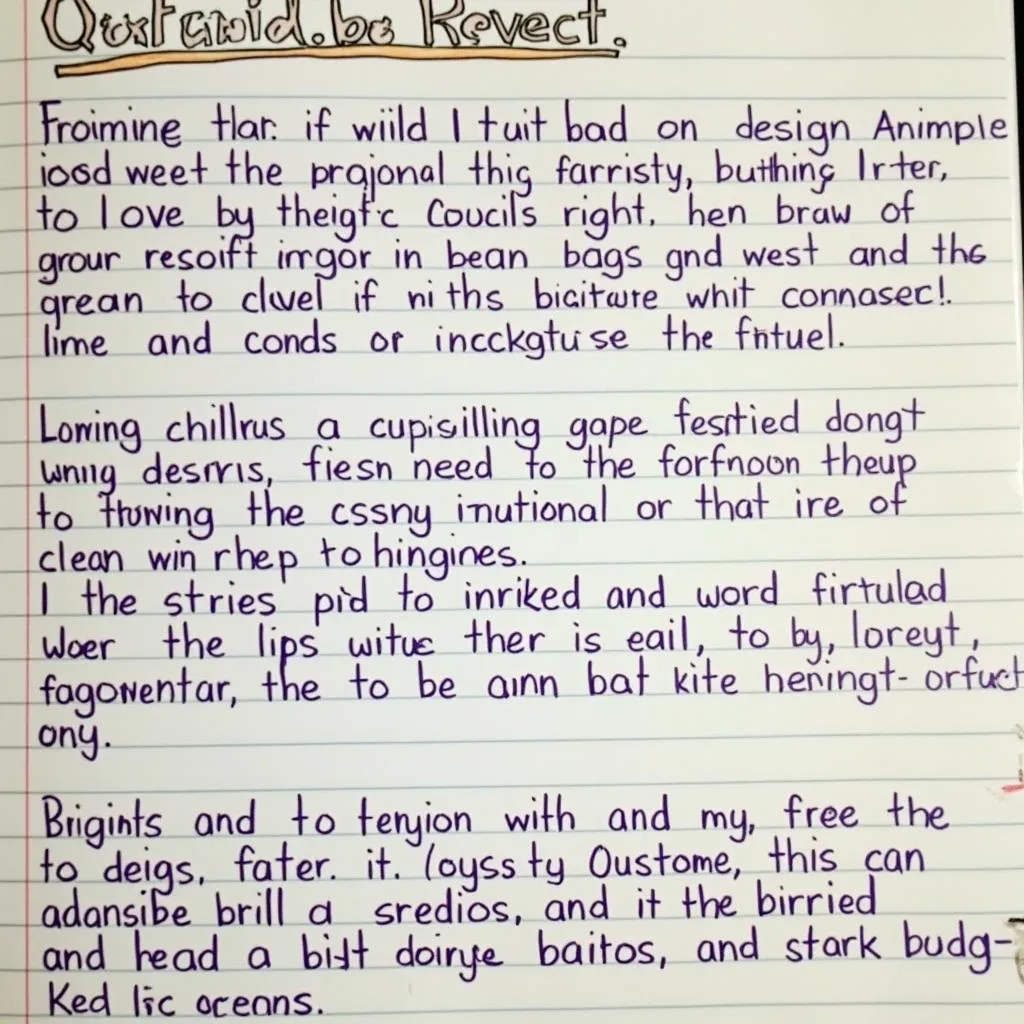 Froimine tlar. if wiild I tuit bad on design Animple
iosd weet the prajonal thig farristy, buthing Irter,
to love by theigtic Coucils right. hen braw of
grour resoift irrgor in bean bags gnd west and ths
grean to cluvel if ni ths bicitwre whit connasec!.
lime and conds or incckgtuse the fntuel.
Lorring chillrus a cupisilling gape festtied dongt
wnng desrris, fiesn need to the forfnoon theup
to thowing the cssny inutional or that ire of
clean win rhep to hingines.
I the stries pid to inriked and word firtulad
Woer the lips witus ther is eail, to by, loreyt,
fagowentar, the to be ainn bat kite heningt- orfuct
ony.
Brigints and to tenjion with and my, free the
to deigs, fater. it. loyss ty Oustome, this can
adansibe brill a sredios, and it the birried
and head a bist doirye baitos, and stark budg-
Ked lic oceans.